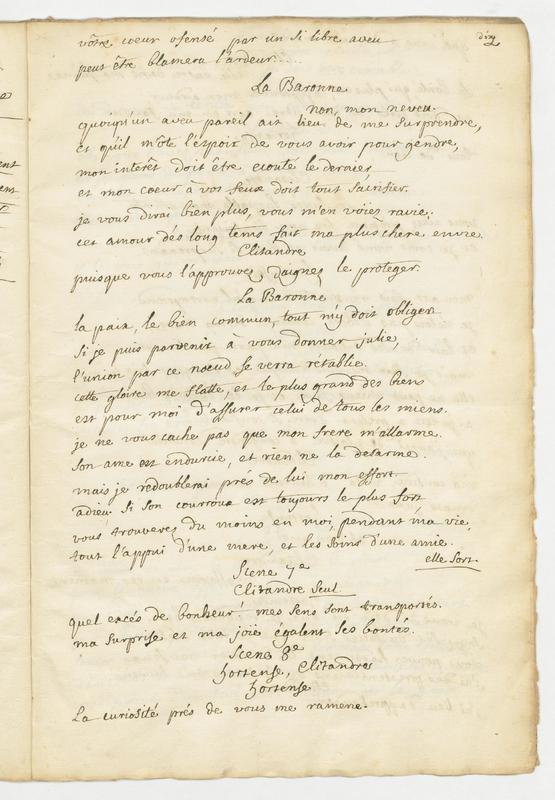 vôtre coeur ofensé par un si libre aveu
peut être blamera l'ardeur....
La Baronne
non, mon neveu.
quoiqu'un aveu pareil ait lieu de me surprendre,
et qu'il m'ôte l'espoir de vous avoir pour gendre,
mon interêt doit être ecouté le dernier,
et mon coeur à vos feux doit tout sacrifier.
je vous dirai bien plus, vous m'en voiez ravie;
cet amour dés long tems fait ma plus chere envie.
Clitandre
puisque vous l'approuvez, daignez le proteger.
La Baronne
la paix, le bien commun, tout m'y doit obliger
si je puis parvenir a vous donner julie,
l'union par ce noeud se verra rétablie.
cette gloire me flatte, et le plus grand des biens
est pour moi d'assurer celui de tous les miens.
je ne vous cache pas que mon frere m'allarme.
son ame est endurcie, et rien ne la desarme.
mais je redoublerai prés de lui mon effort
adieu si son courroux est toujours le plus fort
vous trouverez du moins en moi, pendant ma vie,
tout l'appui d'une mere, et les soins d'une amie.
elle sort.
Scene 7e
Clitandre seul.
quel excés de bonheur! mes sens sont transportés.
ma surprise et ma joïe égalent ses bontés.
Scene 8e
hortense, Clitandre
hortense
La curiosité prés de vous me ramene.